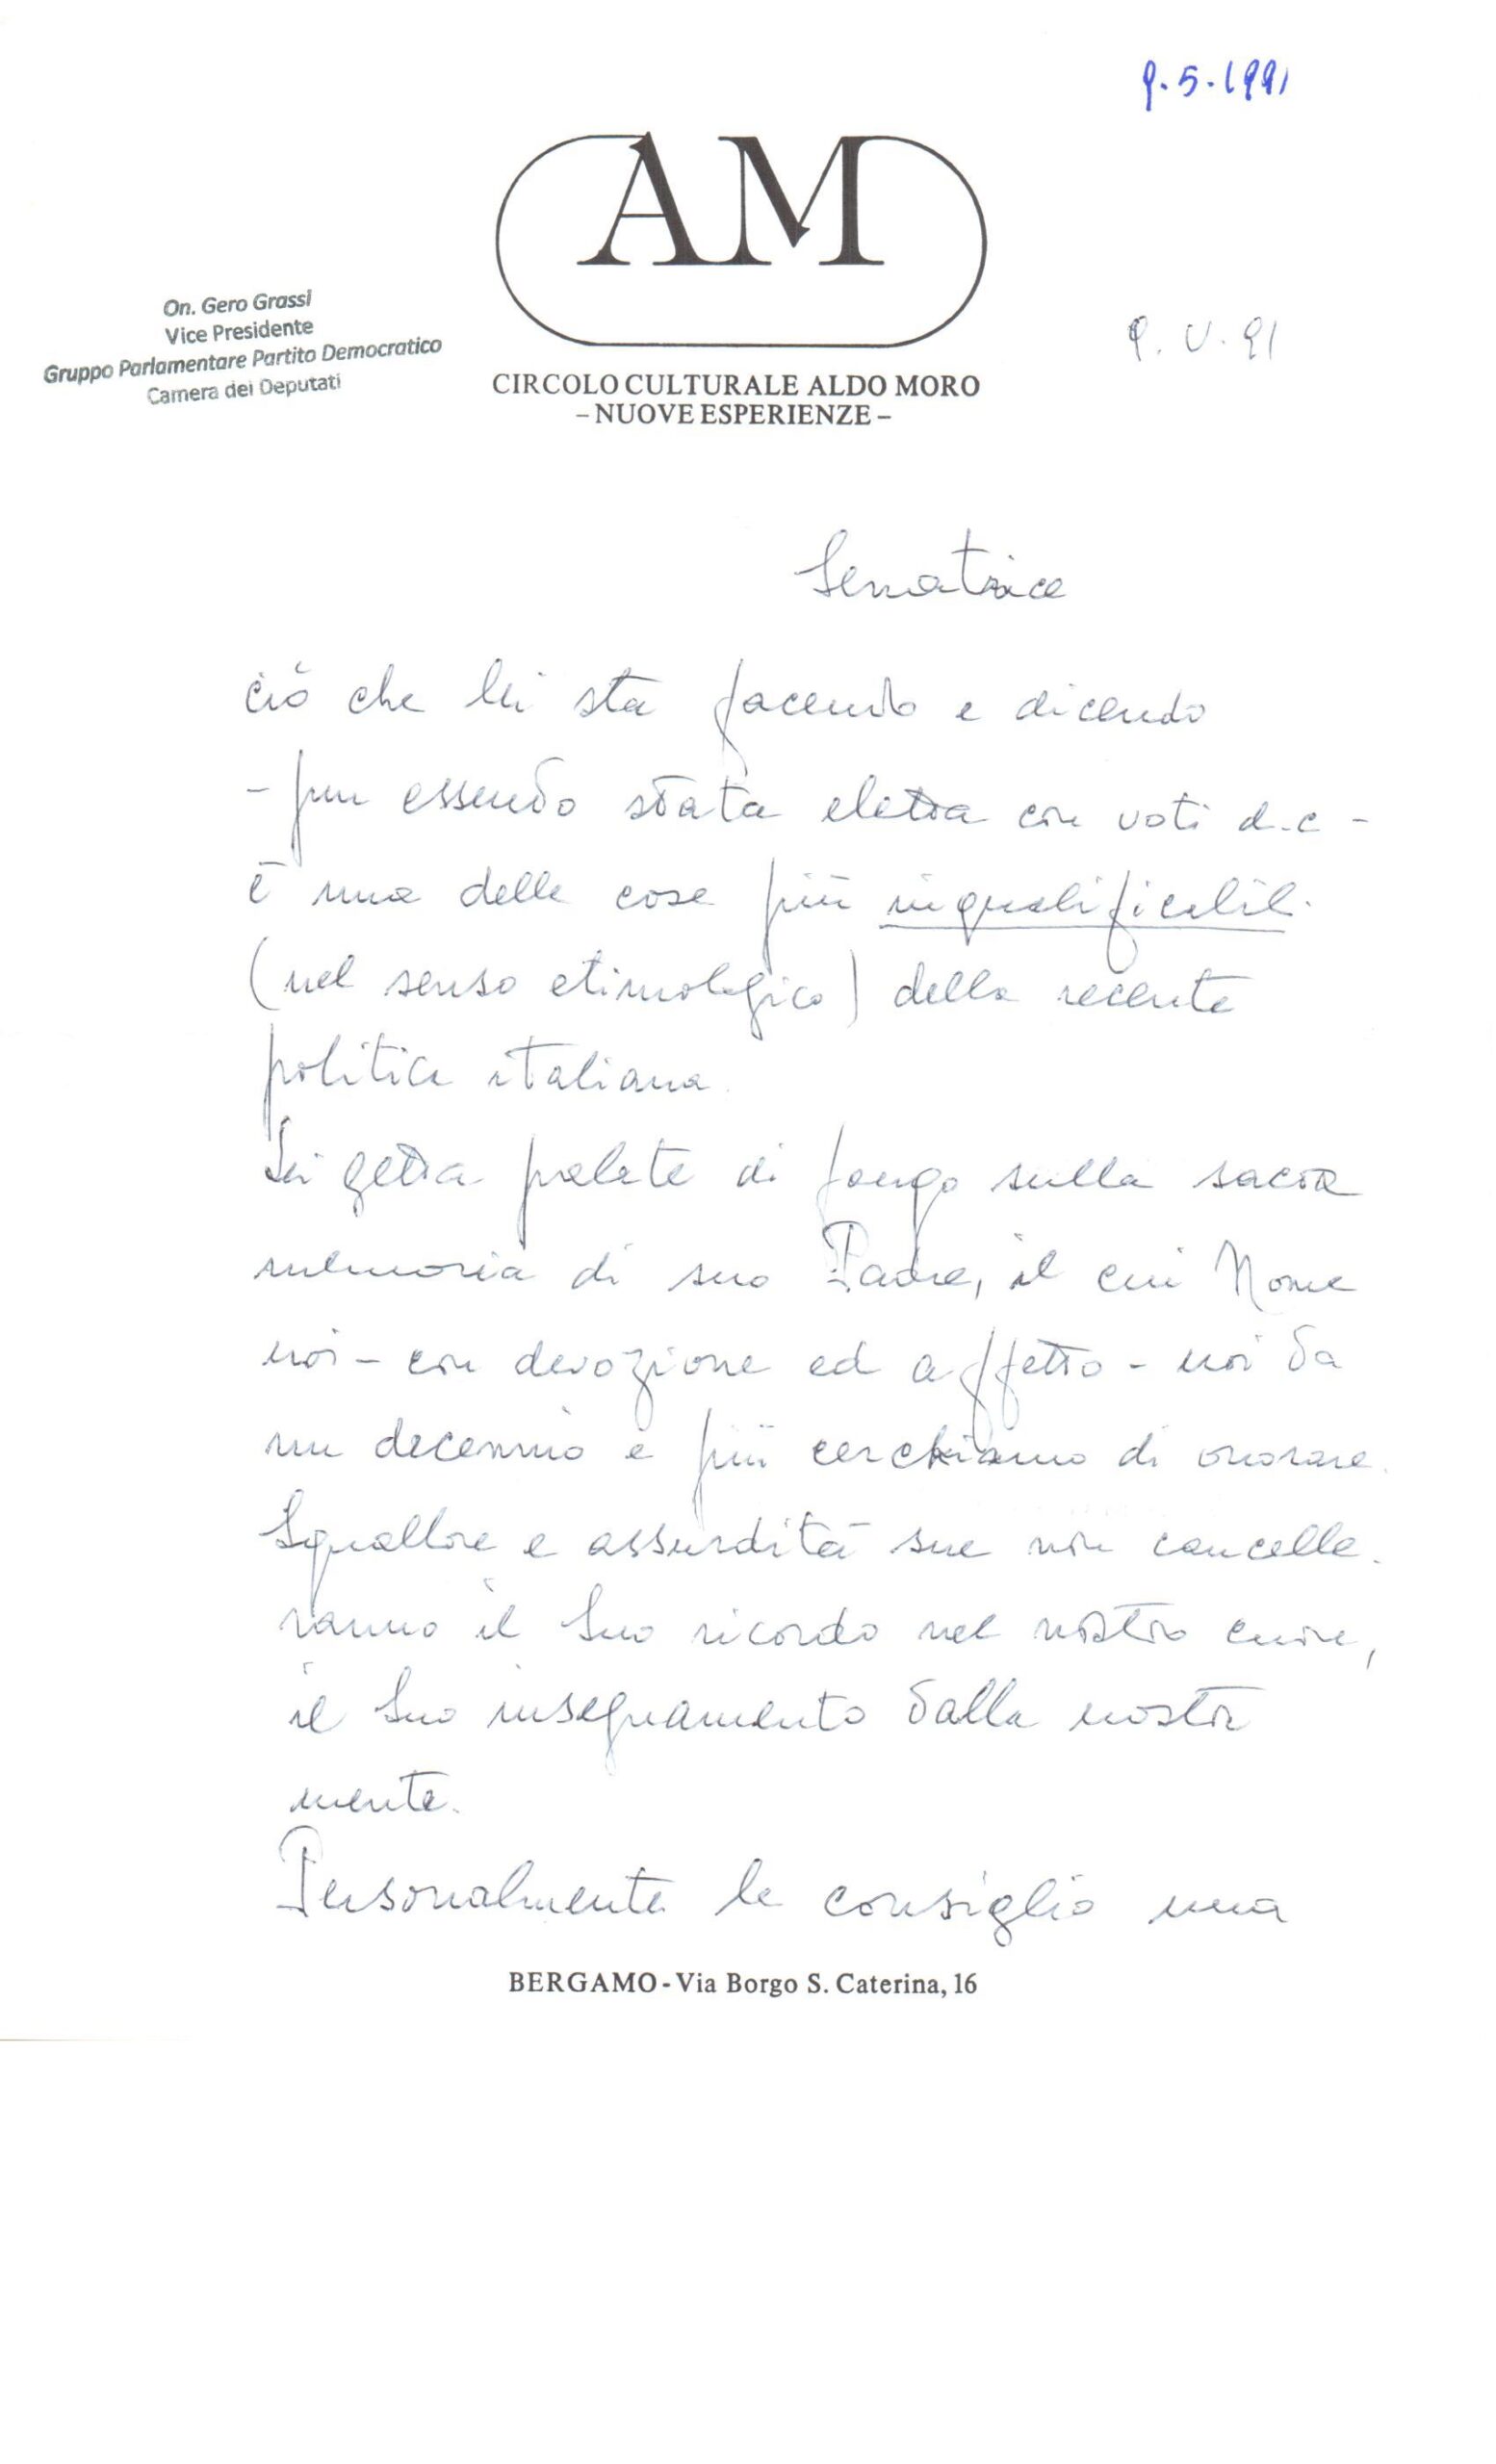 9.5.1991
AM
On. Gero Grassi
Vice Presidente
Gruppo Parlamentare Partito Democratico
Camera dei Deputati
9. V. 91
CIRCOLO CULTURALE ALDO MORO
– NUOVE ESPERIENZE –
Senatrice
ciò che lei sta facendo e dicendo
- pur essendo stata eletta con voti d.c -
è una delle cose più inqualificabili
(nel senso etimologico) della recente
politica italiana.
Lei getta palate di fango sulla sacra
memoria di suo Padre, il cui Nome
noi - con devozione ed affetto - noi da
un decennio e più cerchiamo di onorare.
Squallore e assurdità sue non cancelle-
ranno il Suo ricordo nel nostro cuore,
il Suo insegnamento dalla nostra
mente.
Personalmente le consiglio una
BERGAMO - Via Borgo S. Caterina, 16